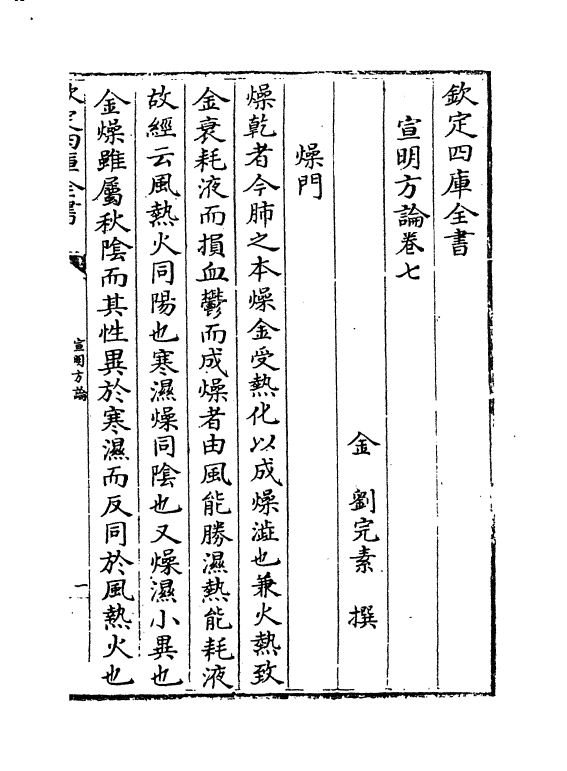 欽定四庫全書
宣明方論卷七
金 劉完素 撰
燥門
燥乾者今肺之本燥金受熱化以成燥澁也兼火熱致
金衰耗液而損血鬱而成燥者由風能勝濕熱能耗液
故經云風熱火同陽也寒濕燥同陰也又燥濕小異也
金燥雖屬秋陰而其性異於寒濕而反同於風熱火也
欽定四庫全書
宣明方論
一